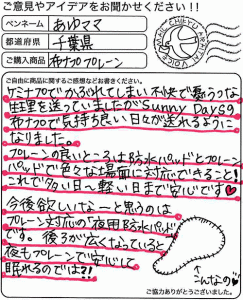 ご意見やアイデアをお聞かせください!!
ペンネーム
あゆママ
都道府県
千葉県
ご購入商品
布ナプ プレーン
ご自由に商品に関するご感想などお書きください。
ケミナプでかぶれてしまい不快で憂うつな
生理を送っていましたがSunny Daysの
布ナプで気持ち良い日々が送れるように
なりました。
プレーンの良いところは防水パッドとプレーン
パッドで色々な場面に対応できること!
これで多い日〜軽い日まで安心です♥
今後欲しいな〜と思うのは
プレーン対応の"夜用防水パッド"
です。後ろが広くなっていると
夜もプレーンで安心して
眠れるのでは?!
こんなの♥
ご協力ありがとうございました。